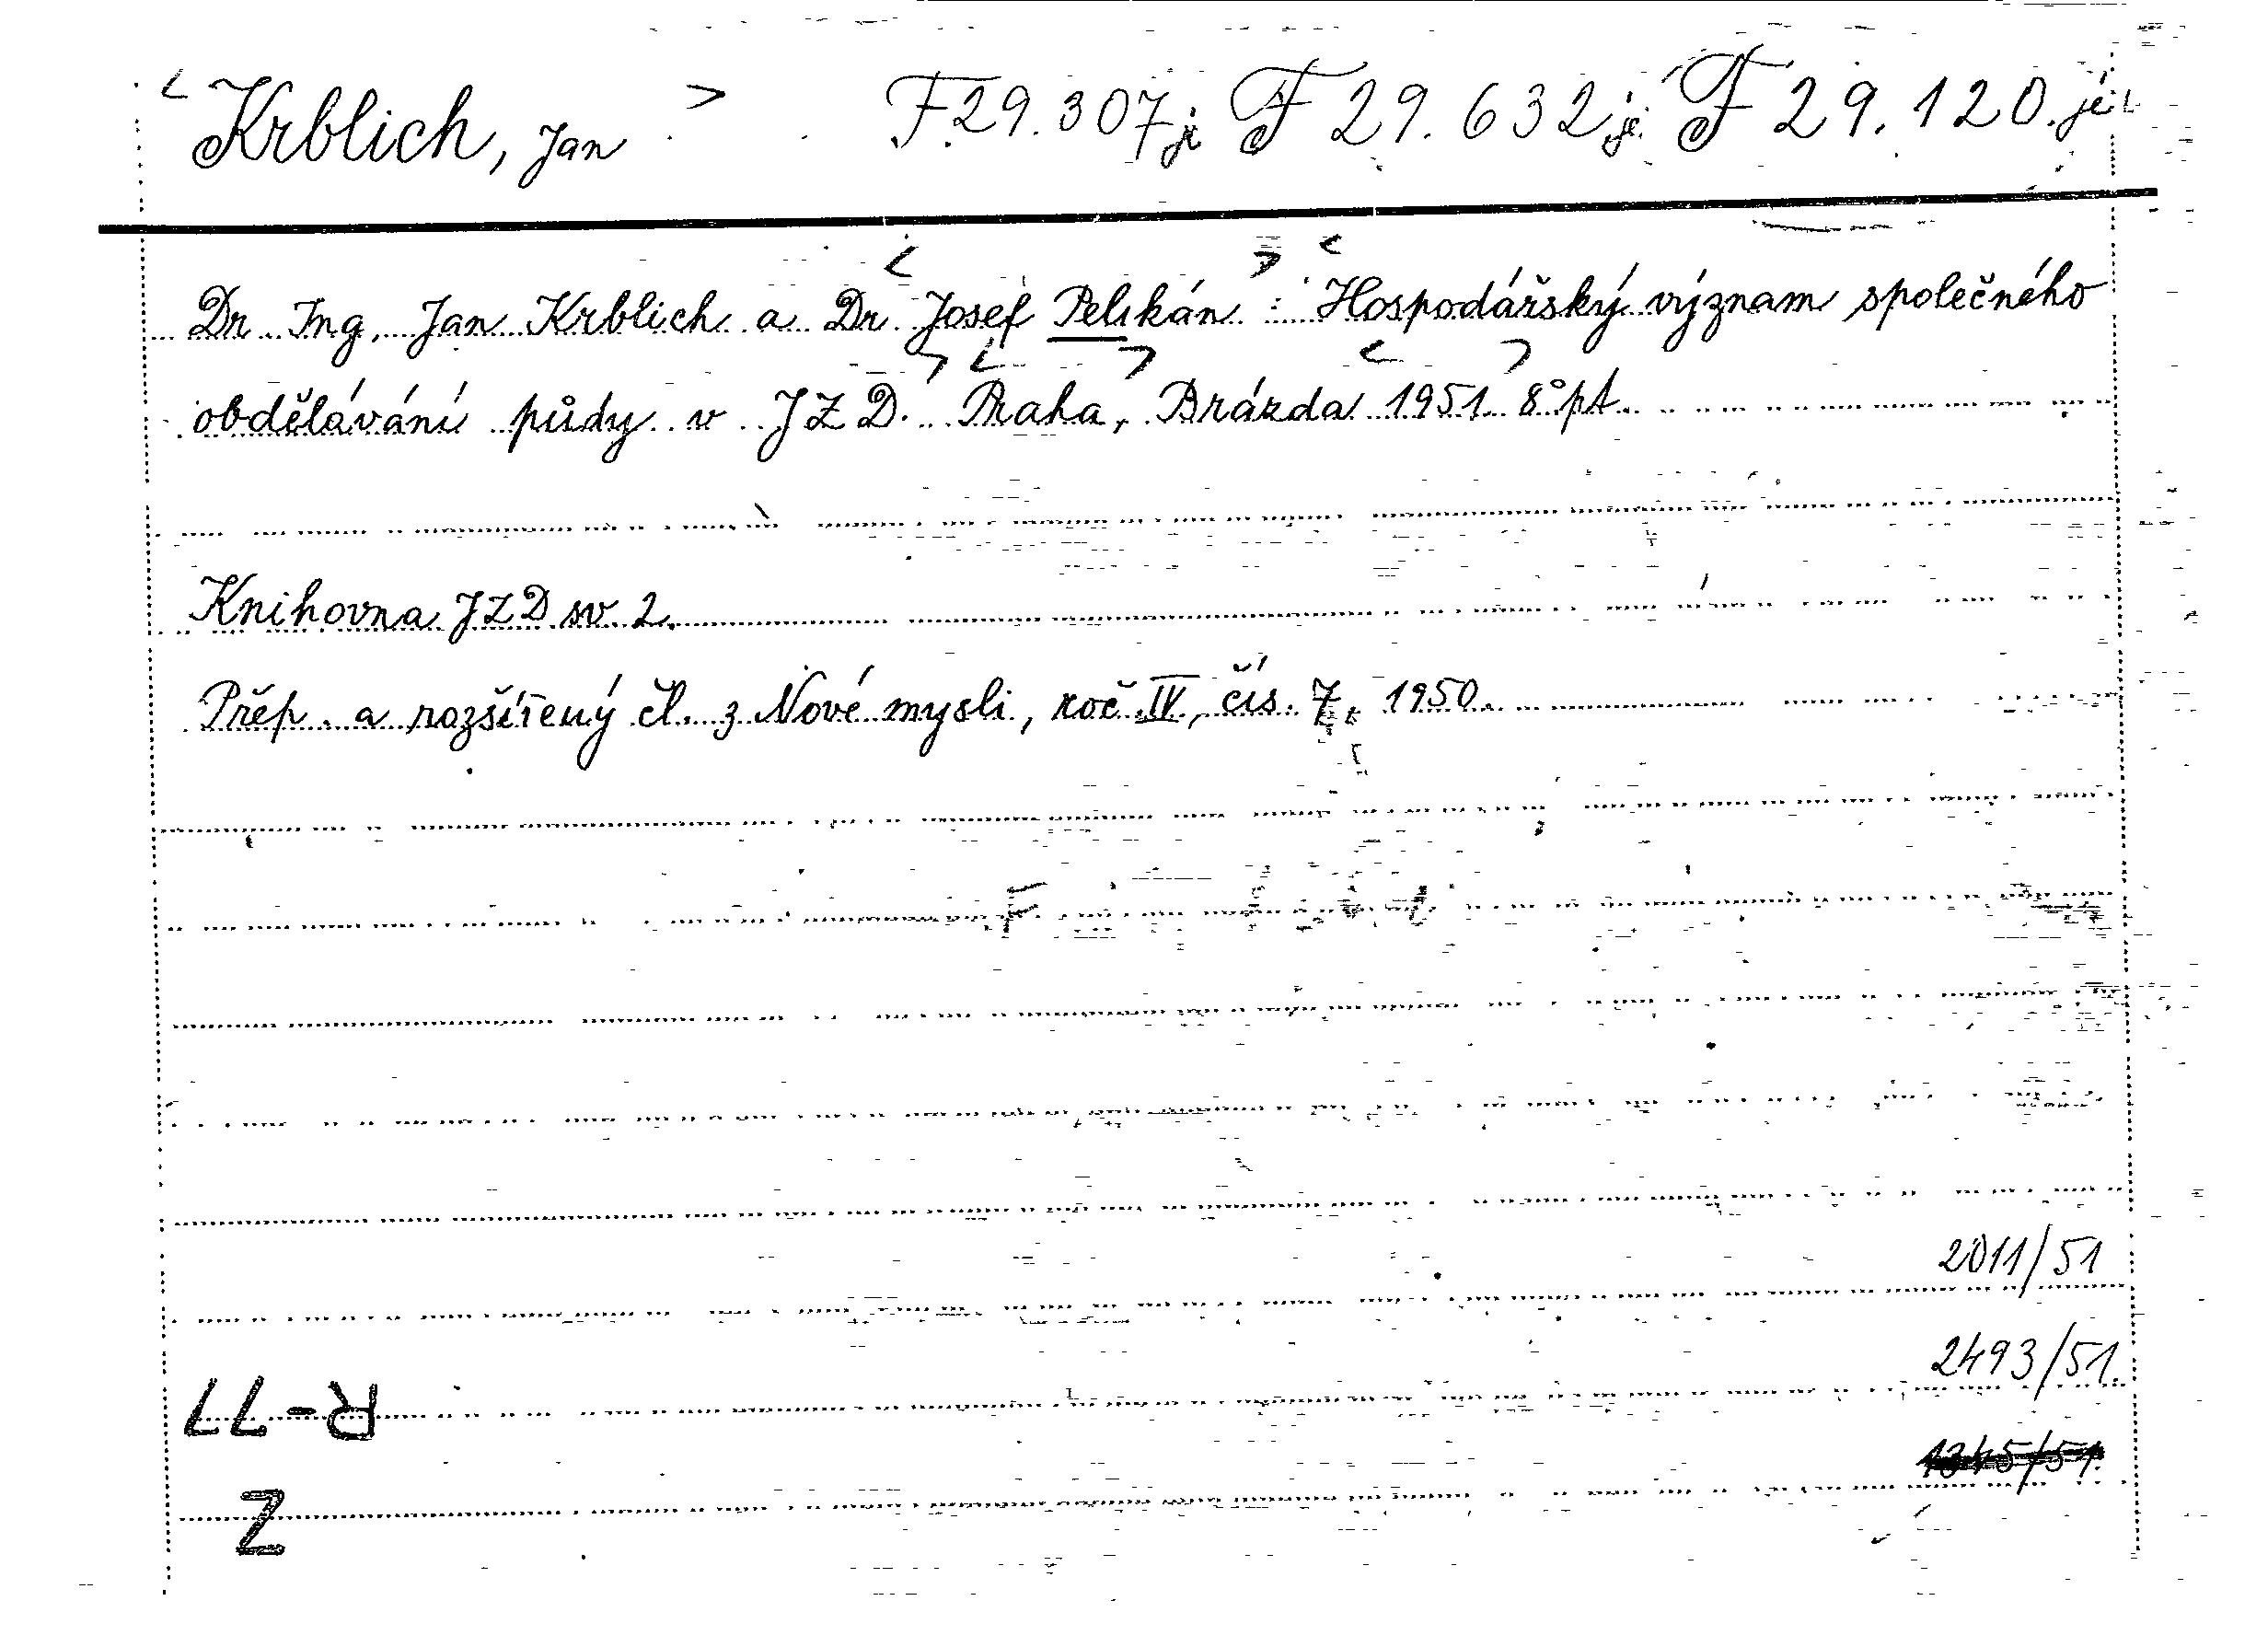 < Krblich, Jan > F 29.307 je F 29.632 je. F 29.120. je
Dr. Ing. Jan Krblich a Dr. <Josef Pelikán> : <Hospodářský význam společného
obdělávání půdy v JZD.> <Praha>, Brázda <1951> 8° pt.
Knihovna JZD sv. 2.
Přep. a rozšířený čl. z Nové mysli, roč. IV, čís. 7, 1950.
2011/51
2493/51.
R-77
1345/51
Z